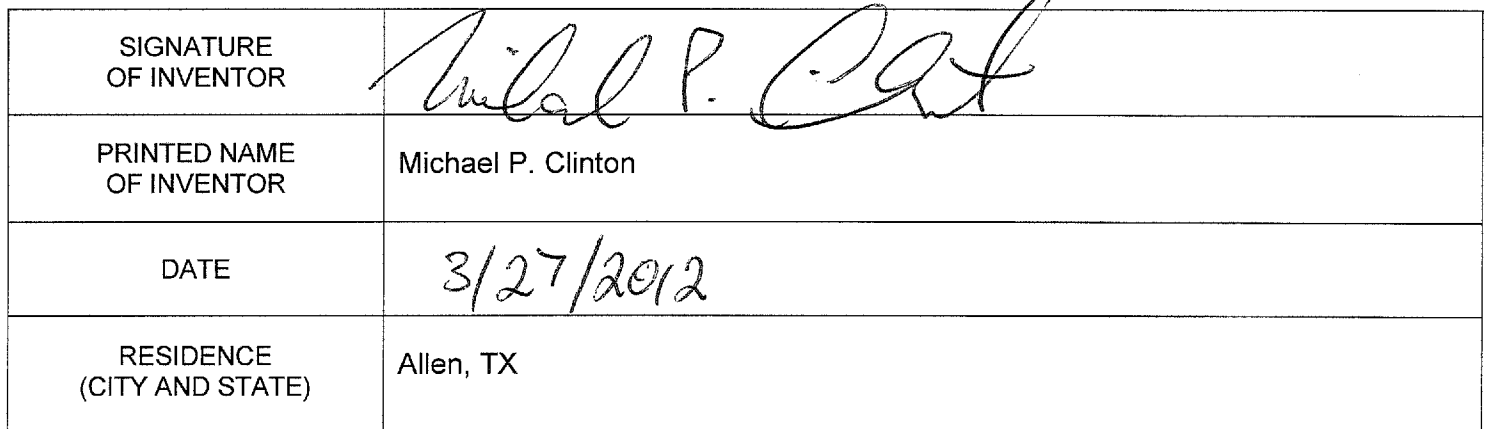 SIGNATURE
OF INVENTOR
Michael P. Clinton
PRINTED NAME
OF INVENTOR
Michael P. Clinton
DATE
3/27/2012
RESIDENCE
(CITY AND STATE)
Allen, TX